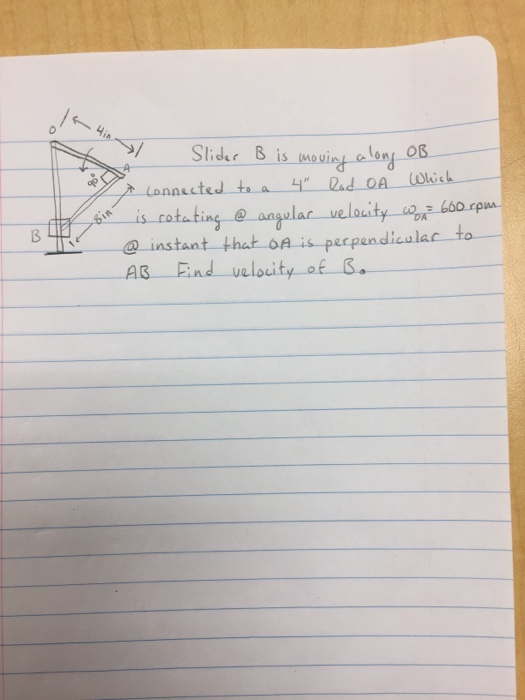 O
4in
A
90°
8in
B
Slider B is moving along OB
connected to a 4" Rod OA which
is rotating @ angular velocity ω_OA = 600 rpm
@ instant that OA is perpendicular to
AB Find velocity of B.